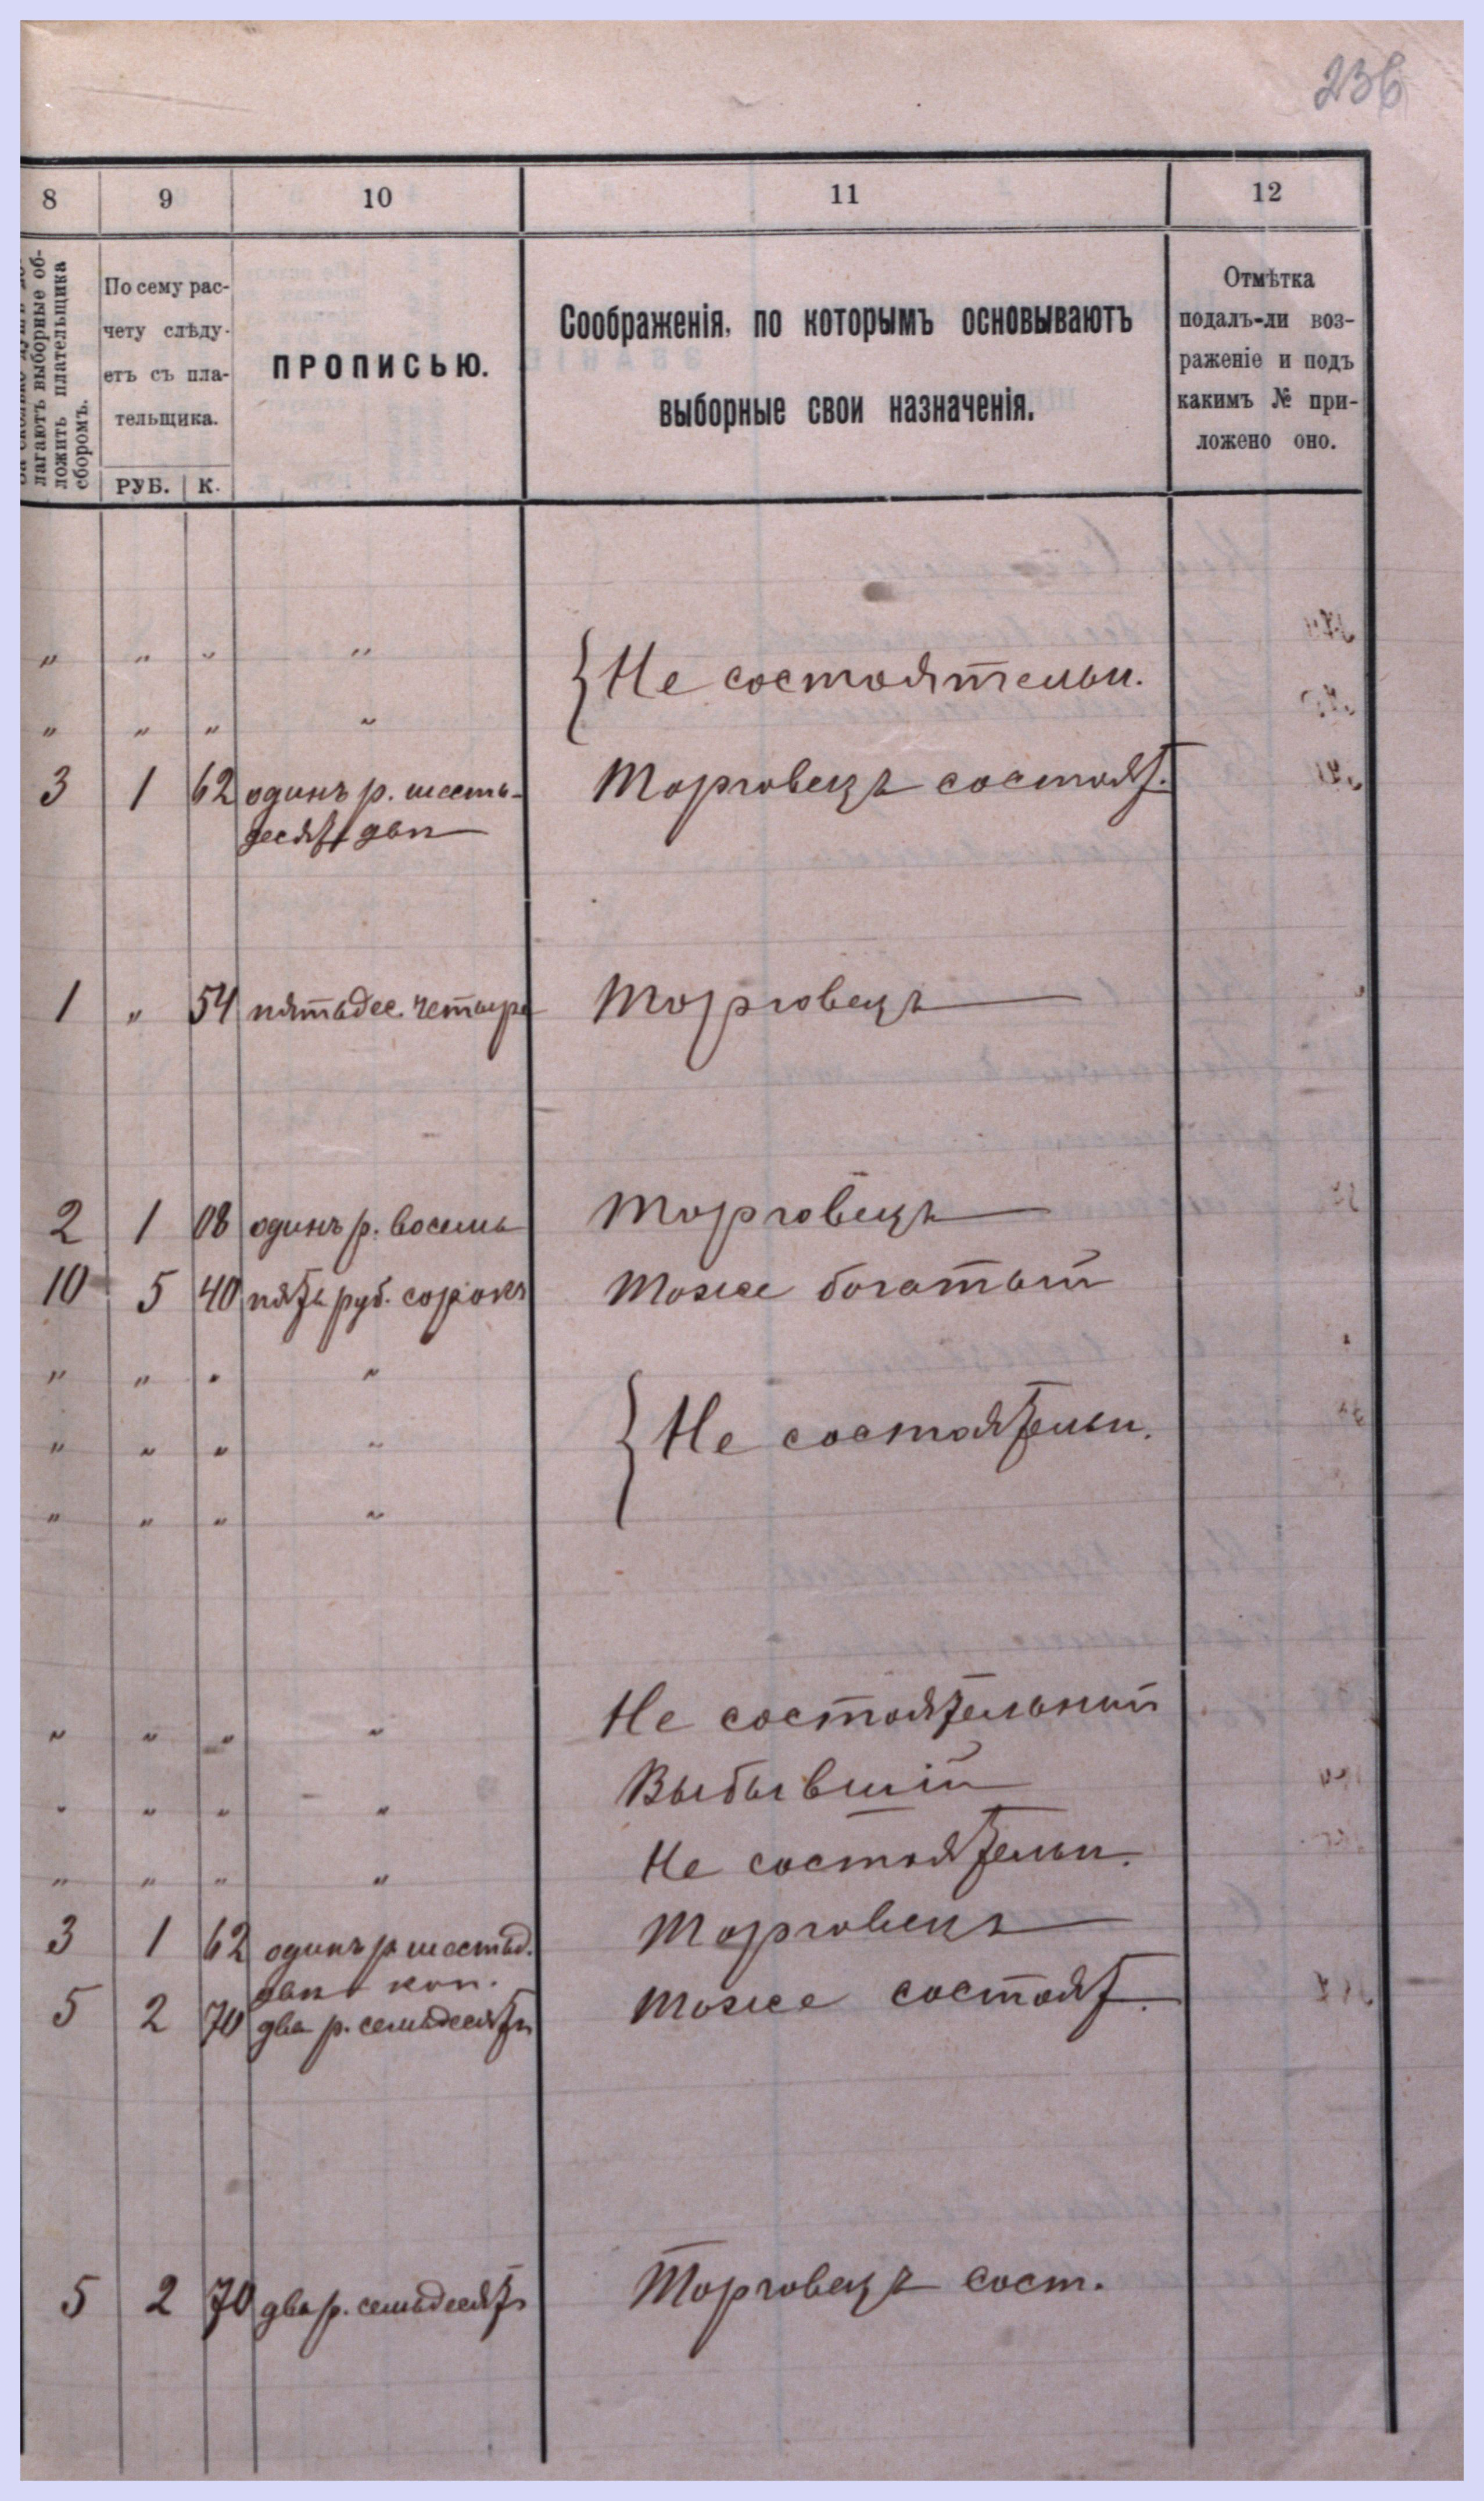 236
8 9 10 11 12
лагаютъ выборные об-
ложить плательщика
сборомъ.
По сему рас-
чету слѣду-
етъ съ пла-
тельщика.
РУБ. К.
ПРОПИСЬЮ.
Соображенія, по которымъ основываютъ
выборные свои назначенія.
Отмѣтка
подалъ-ли воз-
раженіе и подъ
какимъ № при-
ложено оно.
" " " "
{ Не состоятельн.
" " " "
3 1 62 одинъ р. шесть- Торговецъ состоят.
десят двп
1 " 54 пятьдес. четыре Торговецъ
2 1 08 одинъ р. восемь Торговецъ
10 5 40 пять руб. сорокъ Тоже богатый
" " " "
" " " " { Не состоятельн.
" " " "
" " " " Не состоятельный
" " " " Выбывшій
" " " " Не состоятельн.
3 1 62 одинъ р шестьд. Торговецъ
двп коп.
5 2 70 два р. семьдесятъ Тоже состоят.
5 2 70 два р. семьдесятъ Торговецъ сост.